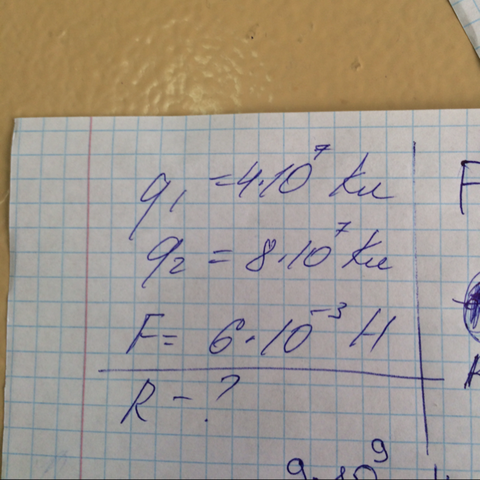 q₁ = 4·10⁷ Кл
q₂ = 8·10⁷ Кл
F = 6·10⁻³ Н
R - ?
F
9·10⁹